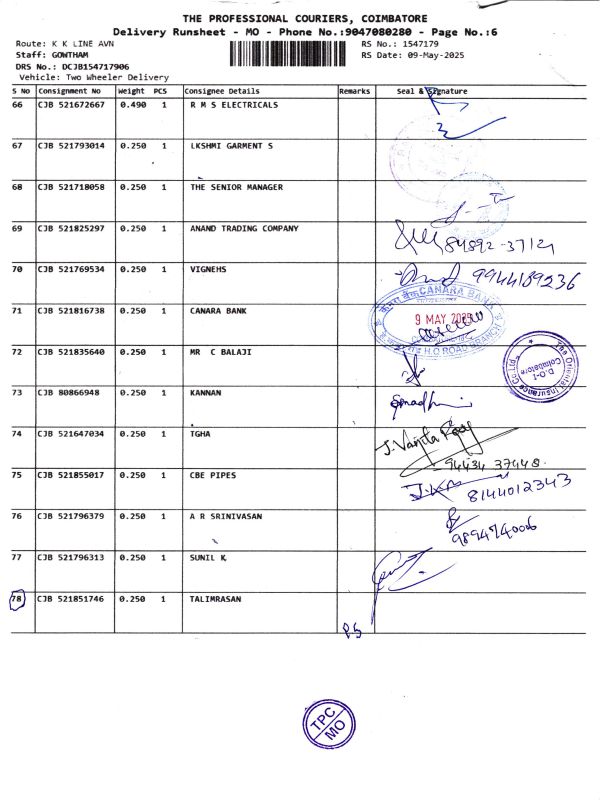 THE PROFESSIONAL COURIERS, COIMBATORE
Delivery Runsheet - MO - Phone No.:9047080280 - Page No.:6
Route: K K LINE AVN
RS No.: 1547179
Staff: GOWTHAM
RS Date: 09-May-2025
DRS No.: DCJB154717906
Vehicle: Two Wheeler Delivery
S No Consignment No Weight PCS Consignee Details Remarks Seal & Signature
66 CJB 521672667 0.490 1 R M S ELECTRICALS
67 CJB 521793014 0.250 1 LKSHMI GARMENT S
68 CJB 521718058 0.250 1 THE SENIOR MANAGER
69 CJB 521825297 0.250 1 ANAND TRADING COMPANY
70 CJB 521769534 0.250 1 VIGNEHS 9944189236
CANARA BANK
71 CJB 521816738 0.250 1 CANARA BANK
9 MAY 2025
H.O ROAD BRANCH
72 CJB 521835640 0.250 1 MR C BALAJI
The Oriental Insurance Co.Ltd.
D.O-1
Coimbatore
73 CJB 80866948 0.250 1 KANNAN
74 CJB 521647034 0.250 1 TGHA
94434 37448
75 CJB 521855017 0.250 1 CBE PIPES 8144012343
76 CJB 521796379 0.250 1 A R SRINIVASAN
9894740006
77 CJB 521796313 0.250 1 SUNIL K
78 CJB 521851746 0.250 1 TALIMRASAN
TPC
MO